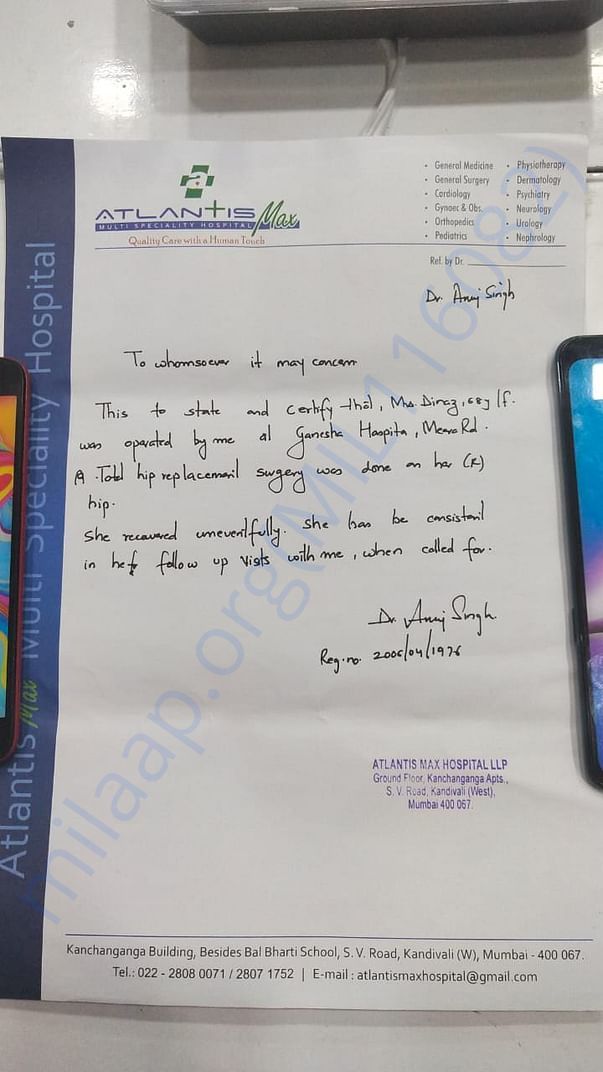 a
ATLANTIS Max
MULTI SPECIALITY HOSPITAL
Quality Care with a Human Touch
• General Medicine
• General Surgery
• Cardiology
• Gynaec & Obs.
• Orthopedics
• Pediatrics
• Physiotherapy
• Dermatology
• Psychiatry
• Neurology
• Urology
• Nephrology
Ref. by Dr.
Dr. Anuj Singh
To whomsoever it may concern
This to state and certify that, Ms. Dinaz, 68y/f.
was operated by me at Ganesha Hospita, Meera Rd.
A Total hip replacement surgery was done on her (R)
hip.
She recovered uneventfully. She has be consistent
in her follow up vists with me, when called for.
Dr. Anuj Singh
Reg. no. 2006/04/1976
ATLANTIS MAX HOSPITAL LLP
Ground Floor, Kanchanganga Apts.,
S. V. Road, Kandivali (West),
Mumbai 400 067.
Kanchanganga Building, Besides Bal Bharti School, S. V. Road, Kandivali (W), Mumbai - 400 067.
Tel.: 022 - 2808 0071 / 2807 1752 | E-mail : atlantismaxhospital@gmail.com
Atlantis Max Multi Speciality Hospital
milaap.org(MIL1116082)